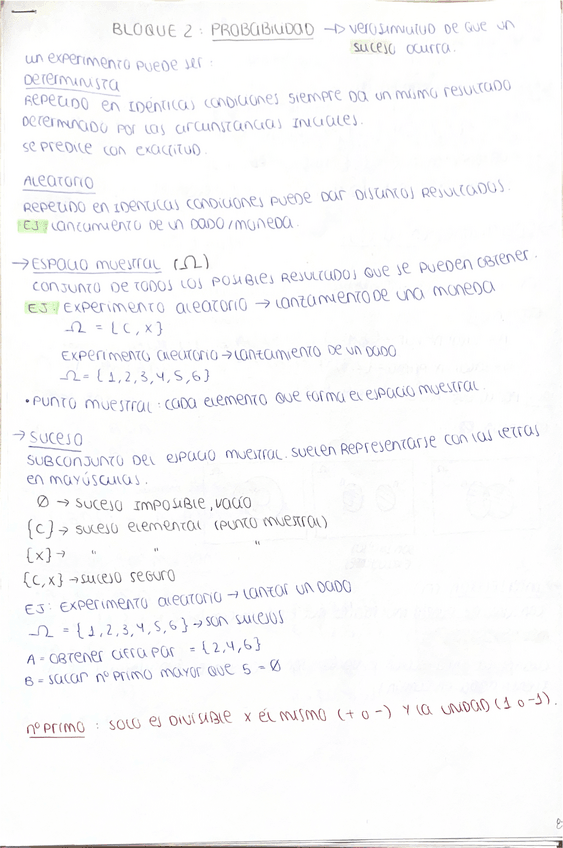 BLOQUE 2: PROBABILIDAD → verosimilitud de que un
suceso ocurra.
un experimento puede ser:
Determinista
Repetido en idénticas condiciones siempre da un mismo resultado
determinado por las circunstancias iniciales.
se predice con exactitud.
Aleatorio
Repetido en idénticas condiciones puede dar distintos resultados.
EJ: lanzamiento de un dado/moneda.
→ ESPACIO muestral (Ω)
conjunto de todos los posibles resultados que se pueden obtener.
EJ: Experimento aleatorio → lanzamiento de una moneda
Ω = {C, X}
Experimento aleatorio → lanzamiento de un dado
Ω = {1, 2, 3, 4, 5, 6}
• Punto muestral: cada elemento que forma el espacio muestral.
→ Suceso
subconjunto del espacio muestral. Suelen representarse con las letras
en mayúsculas.
Ø → suceso imposible, vacío
{C} → suceso elemental (punto muestral)
{X} → " " "
{C, X} → suceso seguro
EJ: Experimento aleatorio → lanzar un dado
Ω = {1, 2, 3, 4, 5, 6} → son sucesos
A = obtener cifra par = {2, 4, 6}
B = sacar nº primo mayor que 5 = Ø
nº primo: solo es divisible x él mismo (+ o -) y la unidad (1 o -1).
8